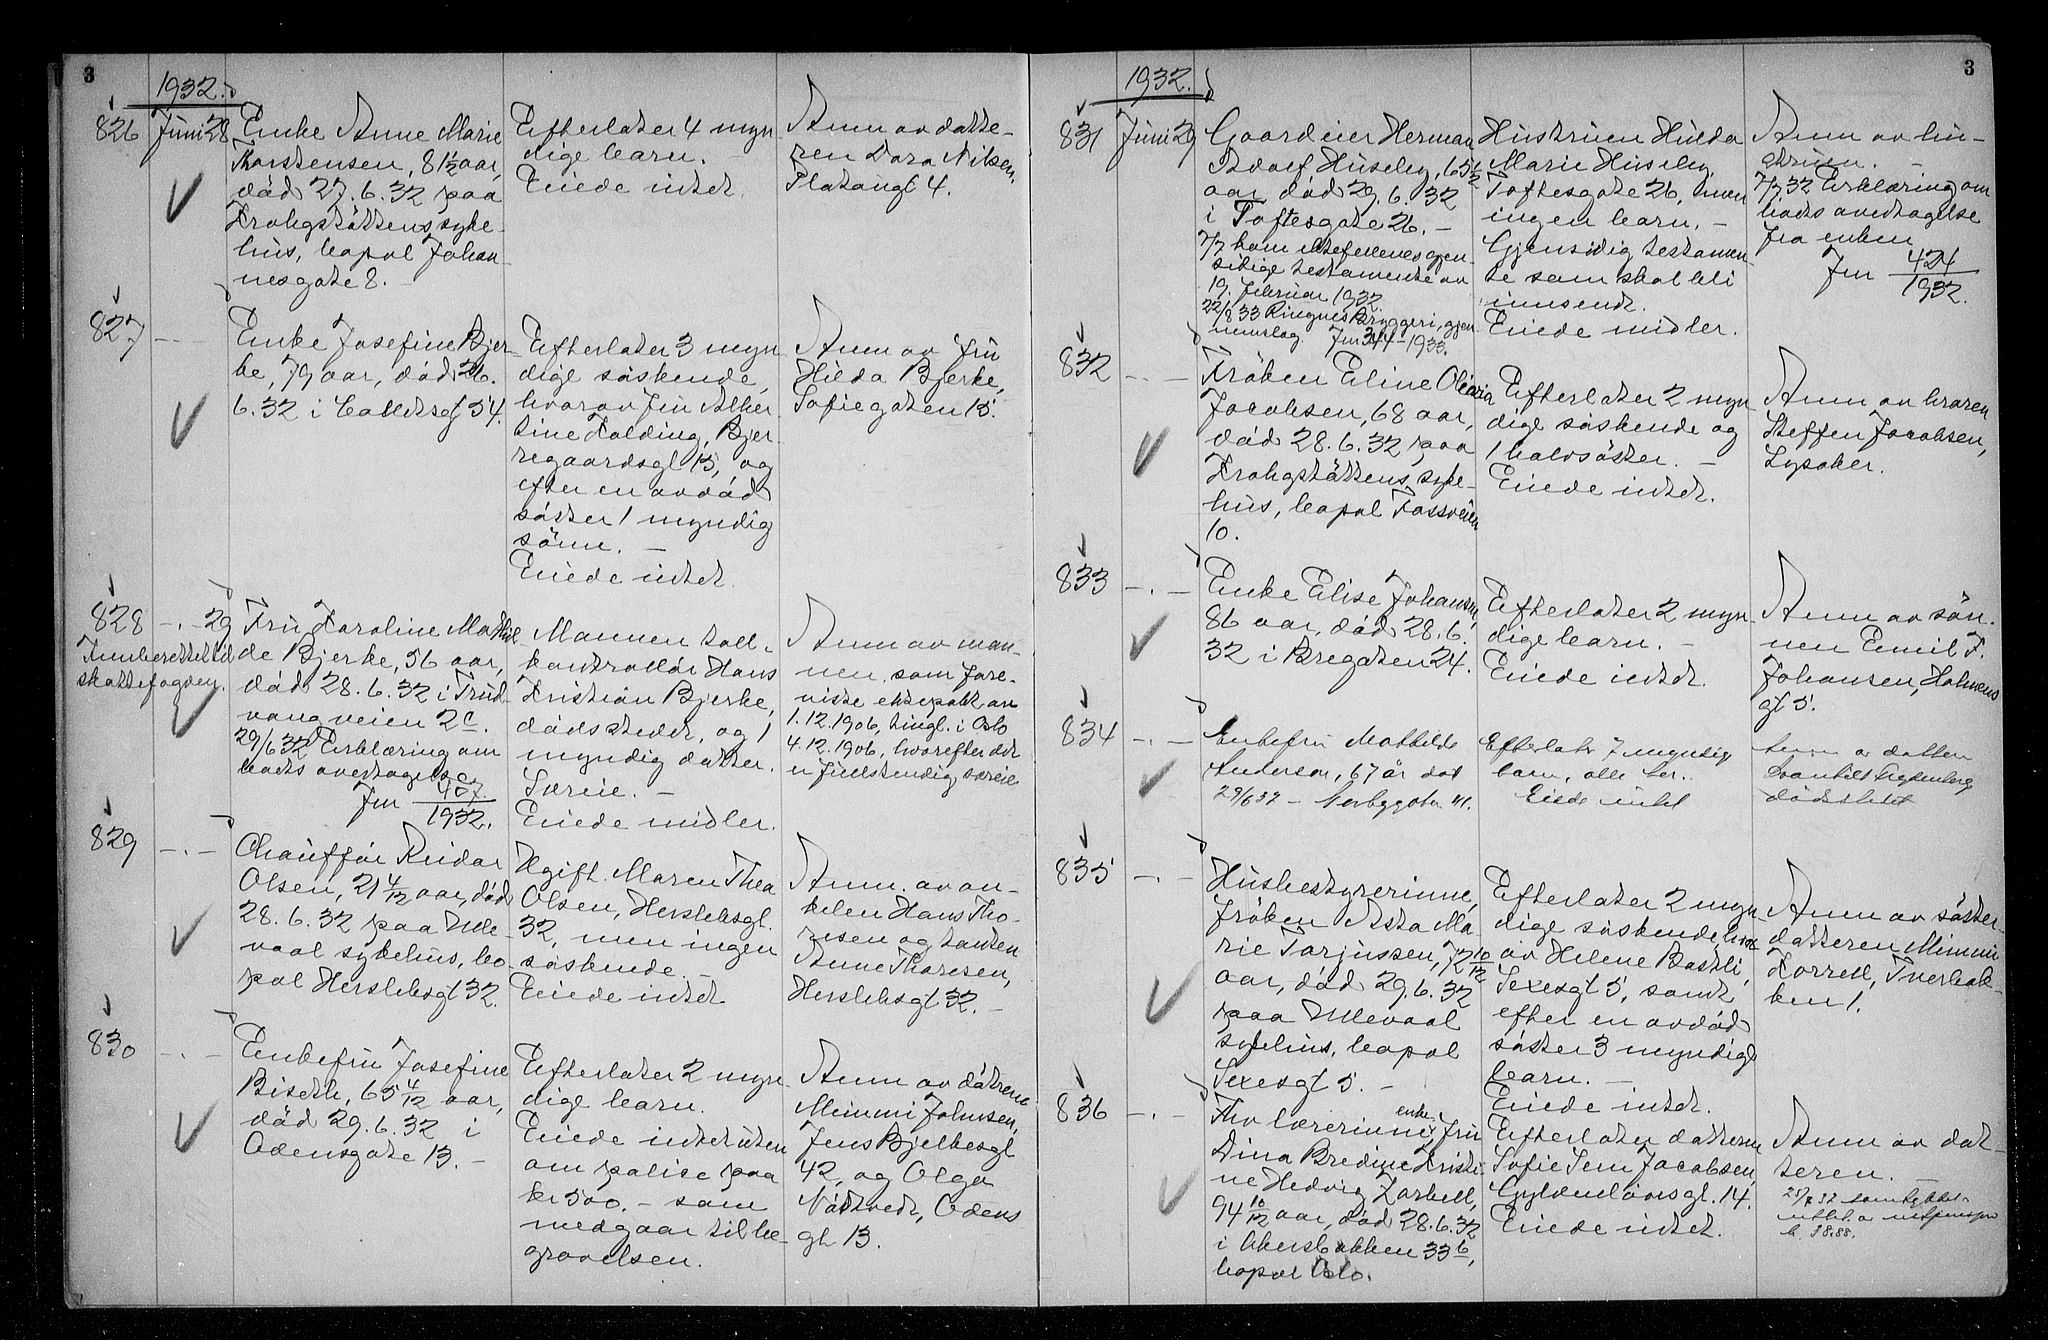 3
1932.
826
Juni 28
Enke Anne Marie
Thorstensen, 81 1/2 aar,
død 27.6.32 paa
Krohgstøttens syke-
hus, bopæl Johan-
nesgate 8.
Efterlater 4 myn-
dige barn. -
Eiede intet.
Anm av datte-
ren Dora Nilsen,
Platougt 4.
827
- . -
Enke Josefine Bjer-
ke, 79 aar, død 26.
6.32 i Collettsgt 54.
Efterlater 3 myn-
dige søskende,
hvorav fru Alber-
tine Falding, Bjer-
regaardsgt 13, og
efter en avdød
søster 1 myndig
sønn. -
Eiede intet.
Anm av fru
Hilda Bjerke,
Sofiegaten 15.
828
- . - 29
skattefogden.
Fru Karoline Mathil-
de Bjerke, 56 aar,
død 28.6.32 i Trud-
vangveien 2c.
29/6 32 Erklæring om
boets overtagelse
Jnr 407
1932.
Mannen toll-
kontrollør Hans
Kristian Bjerke,
dødsstedet, og 1
myndig datter.
Særeie. -
Eiede midler.
Anm av man-
nen, som fore-
viste ektepakt av
1.12.1906, tingl. i Oslo
4.12.1906, hvorefter det
er fuldstendig særeie
829
- . -
Chauffør Reidar
Olsen, 21 4/12 aar, død
28.6.32 paa Ulle-
vaal sykehus, bo-
pæl Herslebsgt 32.
Ugift. Maren Thea
Olsen, Herslebsgt.
32, men ingen
søskende. -
Eiede intet
Anm. av on-
kelen Hans Tho-
resen og tanten
Anne Thoresen,
Herslebsgt 32. -
830
- . -
Enkefru Josefine
Biseth, 65 4/12 aar,
død 29.6.32 i
Odensgate 13. -
Efterlater 2 myn-
dige barn.
Eiede intet uten
om polise paa
kr 500. - som
medgaar til be-
gravelsen.
Anm av døtrene
Mimmi Johnsen,
Jens Bjelkesgt
42, og Olga
Nødtvedt, Odens
gt 13.
3
1932.
831
Juni 29
Gaardeier Herman
Adolf Huseby, 65 6/12
aar, død 29.6.32
i Toftesgate 26. -
7/7 kom ektefellenes gjen-
sidige testamente av
19. februar 1932.
22/8 33 Ringnes Bryggeri, gjen-
nemslag. Jnr 344 - 1933.
Hustruen Hulda
Marie Huseby,
Toftesgate 26, men
ingen barn. -
Gjensidig testamen-
te som skal bli
innsendt.
Eiede midler.
Anm av hu-
struen. -
7/7 32 Erklæring om
boets overtagelse
fra enken
Jnr 424
1932.
832
- . -
Frøken Eline Olivia
Jacobsen, 68 aar,
død 28.6.32 paa
Krohgstøttens syke-
hus, bopæl Fossveien
10.
Efterlater 2 myn-
dige søskende og
1 halvsøster. -
Eiede intet.
Anm av broren
Steffen Jacobsen,
Lysaker.
833
- . -
Enke Elise Johansen,
86 aar, død 28.6.
32 i Bregaten 24.
Efterlater 2 myn-
dige barn. -
Eiede intet.
Anm av søn-
nen Emil F.
Johansen, Holmens
gt 5.
834
- . -
Enkefru Mathilde
Andersen, 67 år død
29/6 32 -
Efterlater 7 myndig
barn, alle her.
Eiede intet
Anm av datter
dødsstedet
835
- . -
Husbestyrerinne,
frøken Asta Ma-
rie Torjussen, 72 10/12
aar, død 29.6.32
paa Ullevaal
sykehus, bopæl
Sexesgt 5. -
Efterlater 2 myn-
dige søskende, hvor
av Helene Bastli,
Sexesgt 5, samt
efter en avdød
søster 3 myndige
barn. -
Eiede intet.
Anm av søster-
datteren Mimmi
Korrell, Tverbak-
ken 1.
836
- . -
Fhv lærerinne, enke fru
Dina Bredine Kristi-
ne Hedvig Zarbell,
94 10/12 aar, død 28.6.32
i Akersbakken 33 b,
bopæl Oslo.
Efterlater datteren
Sofie Sem Jacobsen,
Gyldenløvesgt. 14.
Eiede intet.
Anm av dat-
teren. -